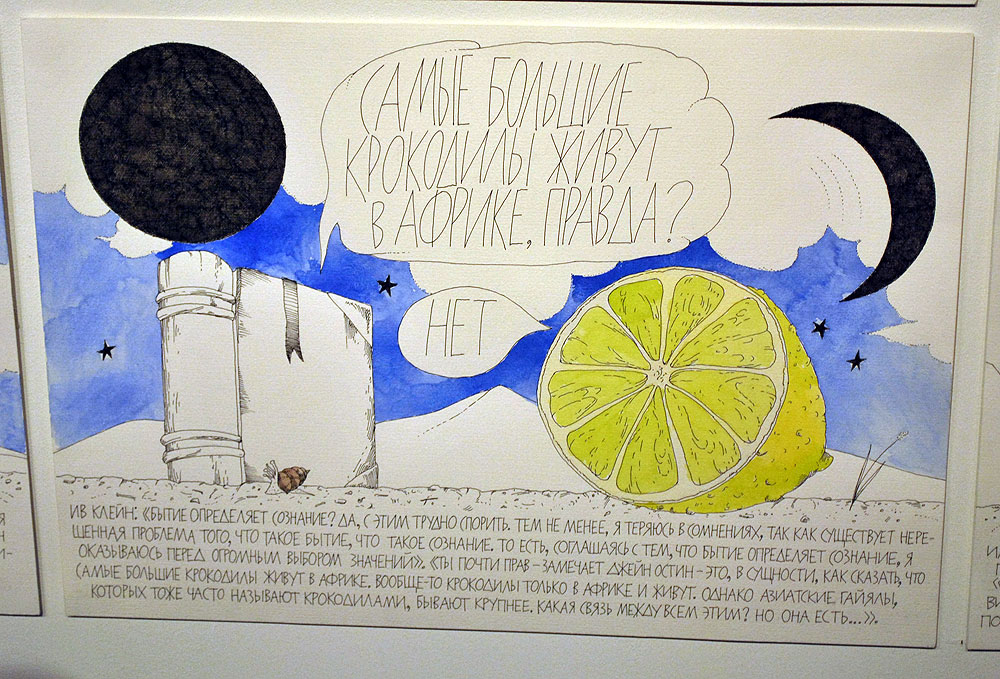 САМЫЕ БОЛЬШИЕ
КРОКОДИЛЫ ЖИВУТ
В АФРИКЕ, ПРАВДА?
НЕТ
ИВ КЛЕЙН: «БЫТИЕ ОПРЕДЕЛЯЕТ СОЗНАНИЕ? ДА, С ЭТИМ ТРУДНО СПОРИТЬ. ТЕМ НЕ МЕНЕЕ, Я ТЕРЯЮСЬ В СОМНЕНИЯХ, ТАК КАК СУЩЕСТВУЕТ НЕРЕ-
ШЕННАЯ ПРОБЛЕМА ТОГО, ЧТО ТАКОЕ БЫТИЕ, ЧТО ТАКОЕ СОЗНАНИЕ. ТО ЕСТЬ, СОГЛАШАЯСЬ С ТЕМ, ЧТО БЫТИЕ ОПРЕДЕЛЯЕТ СОЗНАНИЕ, Я
ОКАЗЫВАЮСЬ ПЕРЕД ОГРОМНЫМ ВЫБОРОМ ЗНАЧЕНИЙ». «ТЫ ПОЧТИ ПРАВ – ЗАМЕЧАЕТ ДЖЕЙН ОСТИН – ЭТО, В СУЩНОСТИ, КАК СКАЗАТЬ, ЧТО
САМЫЕ БОЛЬШИЕ КРОКОДИЛЫ ЖИВУТ В АФРИКЕ. ВООБЩЕ-ТО КРОКОДИЛЫ ТОЛЬКО В АФРИКЕ И ЖИВУТ. ОДНАКО АЗИАТСКИЕ ГАЙЯЛЫ,
КОТОРЫХ ТОЖЕ ЧАСТО НАЗЫВАЮТ КРОКОДИЛАМИ, БЫВАЮТ КРУПНЕЕ. КАКАЯ СВЯЗЬ МЕЖДУ ВСЕМ ЭТИМ? НО ОНА ЕСТЬ...».